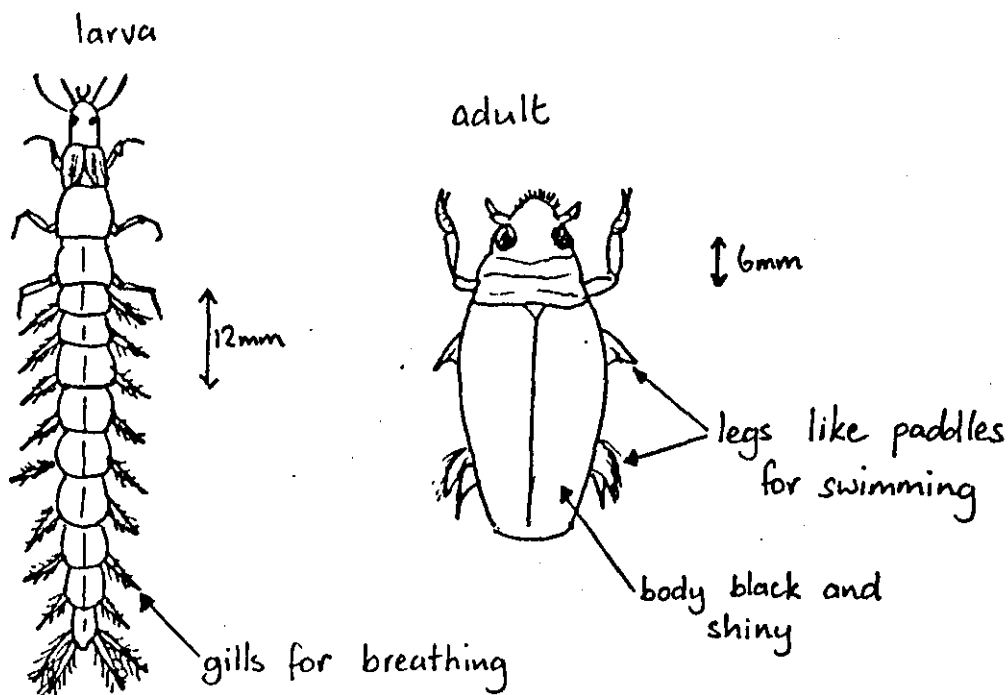 larva
adult
6mm
12mm
legs like paddles
for swimming
body black and
shiny
gills for breathing